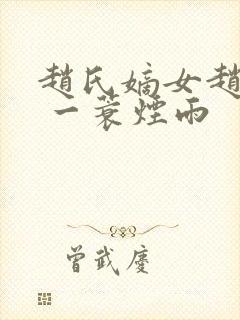 趙氏嫡女趙
一蓑煙雨
曾武慶